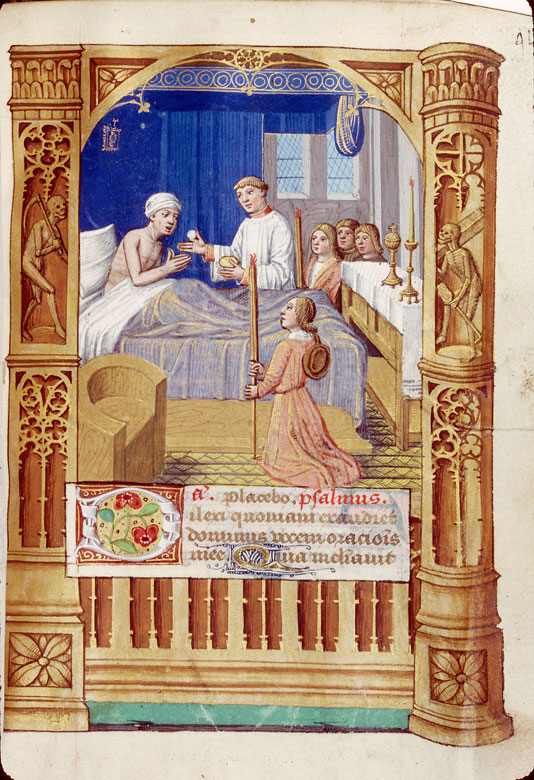 a. Placebo. psalmus.
Dilexi quoniam exaudiet
dominus vocem oracionis
mee Quia inclinavit